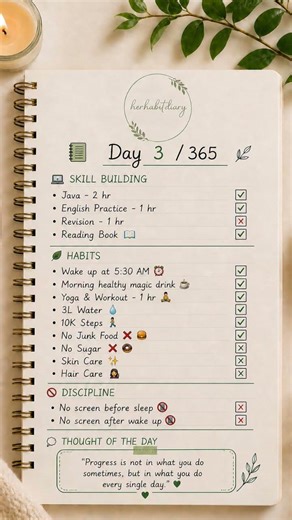 herhabitdiary
Day 3 / 365
SKILL BUILDING
• Java - 2 hr
• English Practice - 1 hr
• Revision - 1 hr
• Reading Book
HABITS
• Wake up at 5:30 AM
• Morning healthy magic drink
• Yoga & Workout - 1 hr
• 3L Water
• 10K Steps
• No Junk Food
• No Sugar
• Skin Care
• Hair Care
DISCIPLINE
• No screen before sleep
• No screen after wake up
THOUGHT OF THE DAY
"Progress is not in what you do
sometimes, but in what you do
every single day."